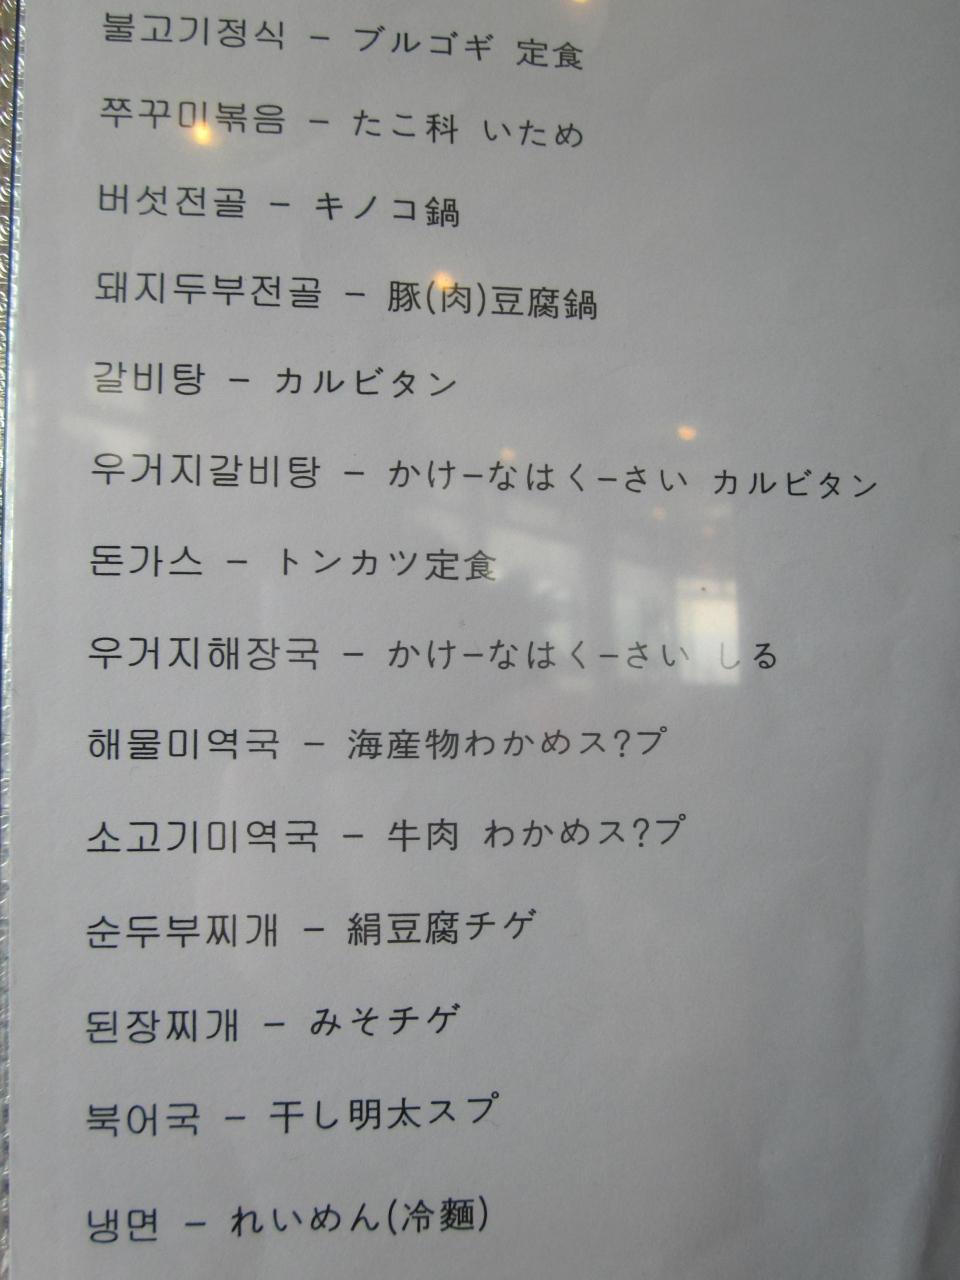 불고기정식 – ブルゴギ 定食
쭈꾸미볶음 – たこ科 いため
버섯전골 – キノコ鍋
돼지두부전골 – 豚(肉)豆腐鍋
갈비탕 – カルビタン
우거지갈비탕 – かけ–なはく–さい カルビタン
돈가스 – トンカツ定食
우거지해장국 – かけ–なはく–さい しる
해물미역국 – 海産物わかめス?プ
소고기미역국 – 牛肉 わかめス?プ
순두부찌개 – 絹豆腐チゲ
된장찌개 – みそチゲ
북어국 – 干し明太スプ
냉면 – れいめん(冷麵)